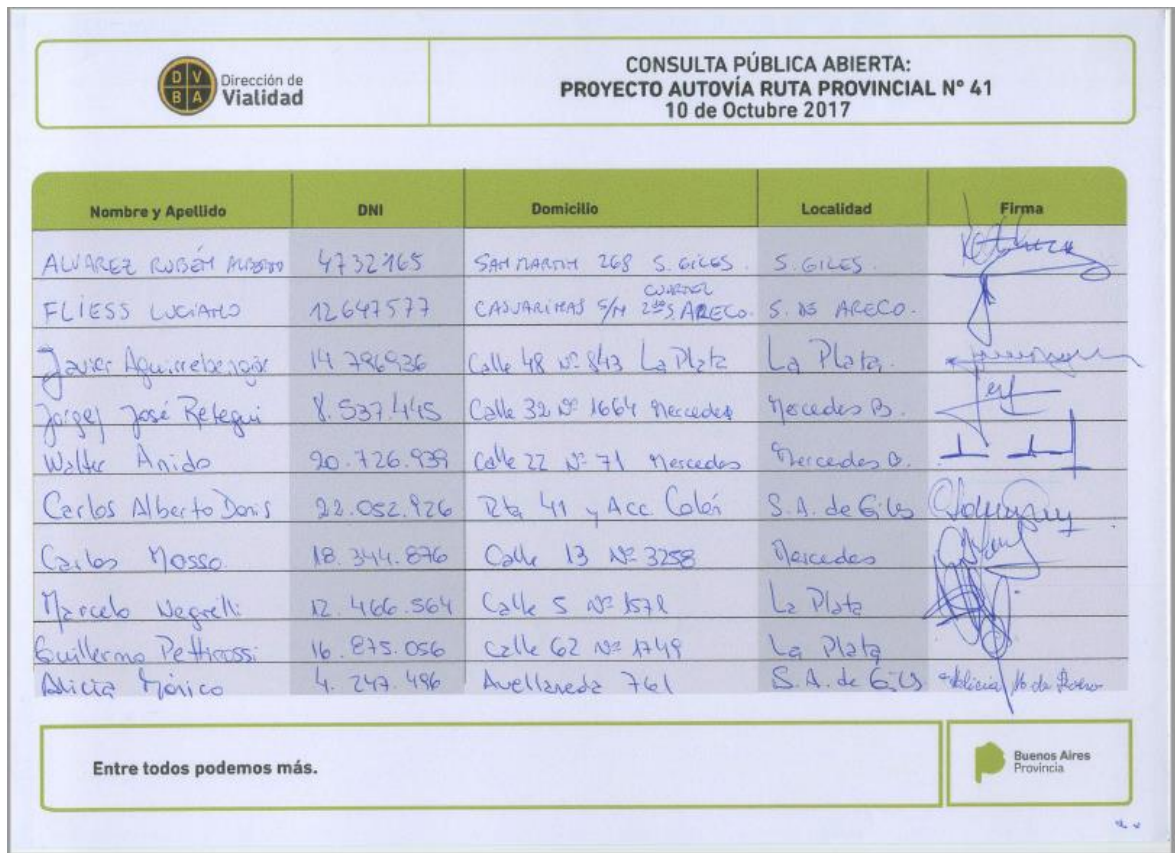 DV
BA
Dirección de
Vialidad
CONSULTA PÚBLICA ABIERTA:
PROYECTO AUTOVÍA RUTA PROVINCIAL N° 41
10 de Octubre 2017
Nombre y Apellido DNI Domicilio Localidad Firma
ALVAREZ RUBÉN ALBERTO 4732165 SAN MARTIN 268 S. GILES. S. GILES.
FLIESS LUCIANO 12647577 CASUARINAS S/N CUARTEL 2do S. ARECO. S. DE ARECO.
Javier 14.796936 Calle 48 Nº 843 La Plata La Plata.
Jorge José Retegui 8.537.445 Calle 32 Nº 1664 Mercedes Mercedes B.
Walter Anido 20.726.939 Calle 22 Nº 71 Mercedes Mercedes B.
Carlos Alberto Donis 22.052.926 Rta 41 y Acc. Colón S.A. de Giles
Carlos Mosso 18.344.876 Calle 13 Nº 3258 Mercedes
Marcelo Negrelli 12.466.564 Calle 5 Nº La Plata
Guillermo Petticrossi 16.875.056 calle 62 Nº 1749 La Plata
Alicia Mónico 4.247.496 Avellaneda 761 S.A. de Giles Alicia M de
Entre todos podemos más.
Buenos Aires
Provincia